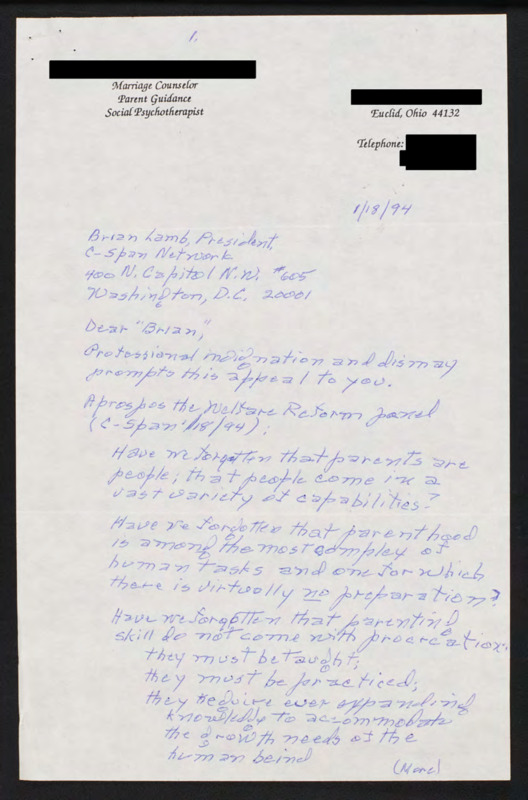 1.
Marriage Counselor
Parent Guidance
Social Psychotherapist
Euclid, Ohio 44132
Telephone:
1/18/94
Brian Lamb, President,
C-Span Network
400 N. Capitol N.W. #605
Washington, D.C. 20001
Dear "Brian,"
Professional indignation and dismay
prompts this appeal to you.
Aprospos the Welfare Reform panel
(C-Span 1/18/94):
Have we forgotten that parents are
people; that people come in a
vast variety of capabilities?
Have we forgotten that parenthood
is among the most complex of
human tasks and one for which
there is virtually no preparation?
Have we forgotten that parenting
skill do not come with procreation:
they must be taught;
they must be practiced;
they require ever expanding
knowledge to accommodate
the growth needs of the
human being
(More)